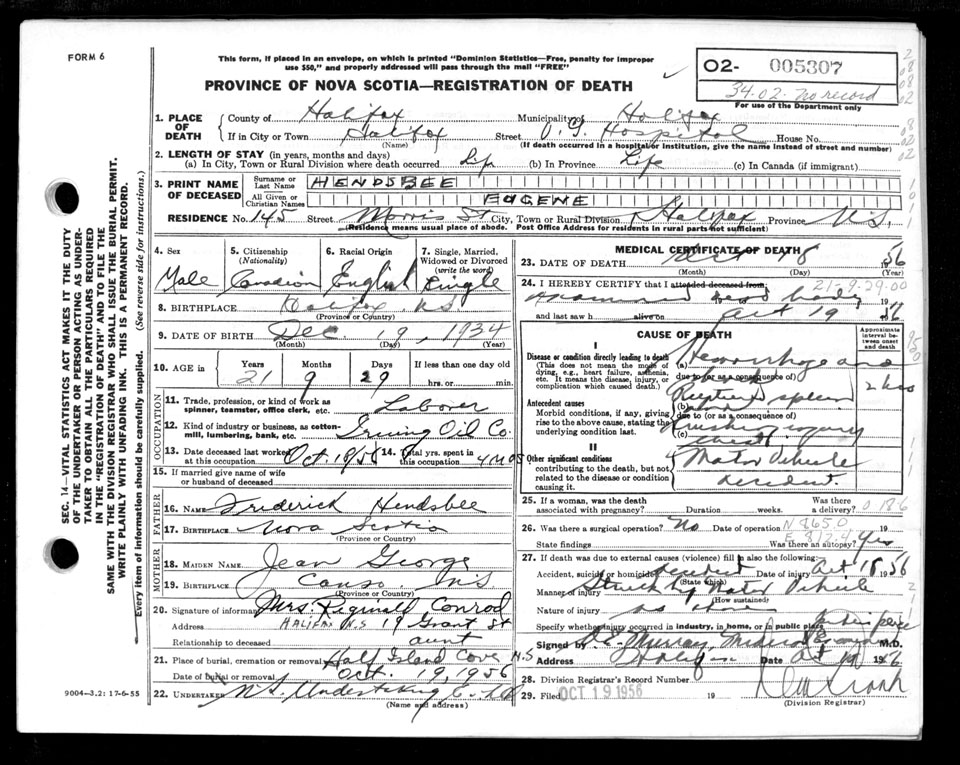 FORM 6
This form, if placed in an envelope, on which is printed "Dominion Statistics—Free, penalty for improper
use $50," and properly addressed will pass through the mail "FREE"
PROVINCE OF NOVA SCOTIA—REGISTRATION OF DEATH
02- 005307
34-02- no record
For use of the Department only
1. PLACE OF DEATH
County of Halifax Municipality of Halifax
If in City or Town Halifax Street V. G. Hospital House No.
(Name) (If death occurred in a hospital or institution, give the name instead of street and number)
2. LENGTH OF STAY (in years, months and days)
(a) In City, Town or Rural Division where death occurred Life (b) In Province Life (c) In Canada (if immigrant)
3. PRINT NAME OF DECEASED
Surname or Last Name HENDSBEE
All Given or Christian Names EUGENE
RESIDENCE No. 145 Street Morris St City, Town or Rural Division Halifax Province N.S.
(Residence means usual place of abode. Post Office Address for residents in rural parts not sufficient)
4. Sex Male
5. Citizenship (Nationality) Canadian
6. Racial Origin English
7. Single, Married, Widowed or Divorced (write the word) Single
8. BIRTHPLACE Halifax NS
(Province or Country)
9. DATE OF BIRTH Dec. 19, 1934
(Month) (Day) (Year)
10. AGE in Years Months Days If less than one day old
21 9 29 hrs. or min.
OCCUPATION
11. Trade, profession, or kind of work as spinner, teamster, office clerk, etc. Laborer
12. Kind of industry or business, as cotton-mill, lumbering, bank, etc. Irving Oil Co.
13. Date deceased last worked at this occupation Oct. 1956 14. Total yrs. spent in this occupation 4 mos
15. If married give name of wife or husband of deceased
FATHER
16. NAME Frederick Hendsbee
17. BIRTHPLACE Nova Scotia
(Province or Country)
MOTHER
18. MAIDEN NAME Jean George
19. BIRTHPLACE Canso NS
(Province or Country)
20. Signature of informant Mrs. Reginald Conrod
Address HALIFAX N.S 19 Grant St
Relationship to deceased aunt
21. Place of burial, cremation or removal Half Island Cove, N.S
Date of burial or removal Oct. 19, 1956
22. UNDERTAKER N.S. Undertaking Co. Ltd
(Name and address)
MEDICAL CERTIFICATE OF DEATH
23. DATE OF DEATH Oct 18 1956
(Month) (Day) (Year)
24. I HEREBY CERTIFY that I attended deceased from: 21-9-29-00
Examined dead body 19
and last saw h alive on Oct 19 1956
CAUSE OF DEATH
Approximate interval between onset and death
I
Disease or condition directly leading to death
(This does not mean the mode of dying, e.g., heart failure, asthenia, etc. It means the disease, injury, or complication which caused death.)
(a) Hemorrhage and
due to (or as a consequence of)
2 hrs
Antecedent causes
Morbid conditions, if any, giving rise to the above cause, stating the underlying condition last.
(b) Ruptured spleen
due to (or as a consequence of)
(c) Crushing injury
chest
II
Other significant conditions
contributing to the death, but not related to the disease or condition causing it.
Motor Vehicle
accident
25. If a woman, was the death associated with pregnancy? Duration weeks. Was there a delivery? 0186
26. Was there a surgical operation? No Date of operation N 8650 19
State findings E 812.4 Was there an autopsy? Yes
27. If death was due to external causes (violence) fill in also the following:
Accident, suicide or homicide accident Date of injury Oct 18 1956
(State which)
Manner of injury Struck by Motor Vehicle
(How sustained)
Nature of injury as above
Specify whether injury occurred in industry, in home, or in public place. Public place
Signed by Murray, Medical Examiner M.D.
Address Halifax Date Oct 19 1956
28. Division Registrar's Record Number
29. Filed OCT 19 1956 19
(Division Registrar)
9004—3.2: 17-6-55
SEC. 14—VITAL STATISTICS ACT MAKES IT THE DUTY
OF THE UNDERTAKER OR PERSON ACTING AS UNDER-
TAKER TO OBTAIN ALL THE PARTICULARS REQUIRED
IN THE "REGISTRATION OF DEATH" AND TO FILE THE
SAME WITH THE DIVISION REGISTRAR WHO SHALL ISSUE THE BURIAL PERMIT.
WRITE PLAINLY WITH UNFADING INK. THIS IS A PERMANENT RECORD.
Every item of information should be carefully supplied. (See reverse side for instructions.)